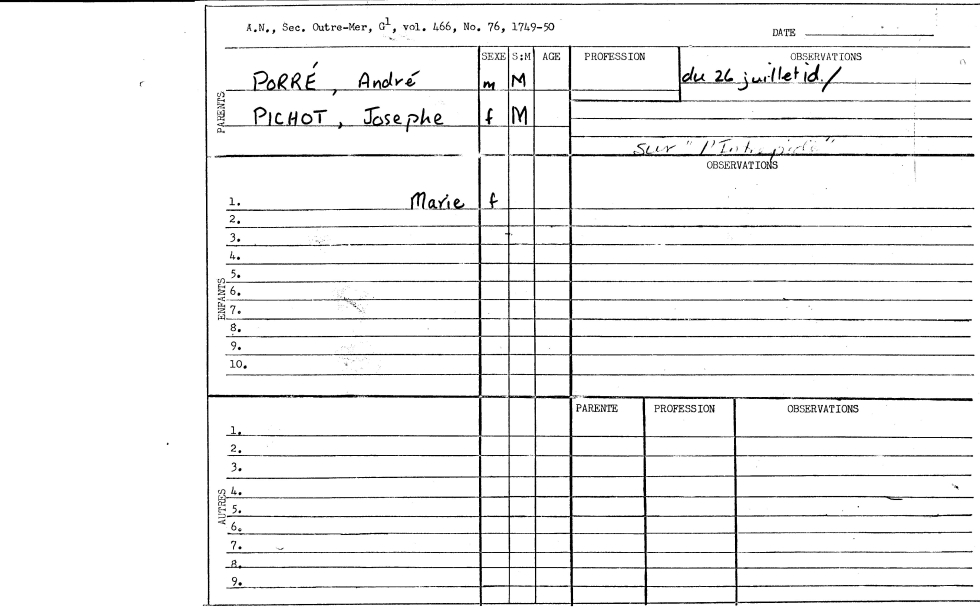 A.N., Sec. Outre-Mer, G1, vol. 466, No. 76, 1749-50
DATE
SEXE S:M AGE PROFESSION OBSERVATIONS
PARENTS
PORRÉ, André m M du 26 juillet id./
PICHOT, Josephe f M
sur "l'Intrepide"
OBSERVATIONS
ENFANTS
1. Marie f
2.
3.
4.
5.
6.
7.
8.
9.
10.
PARENTE PROFESSION OBSERVATIONS
AUTRES
1.
2.
3.
4.
5.
6.
7.
8.
9.